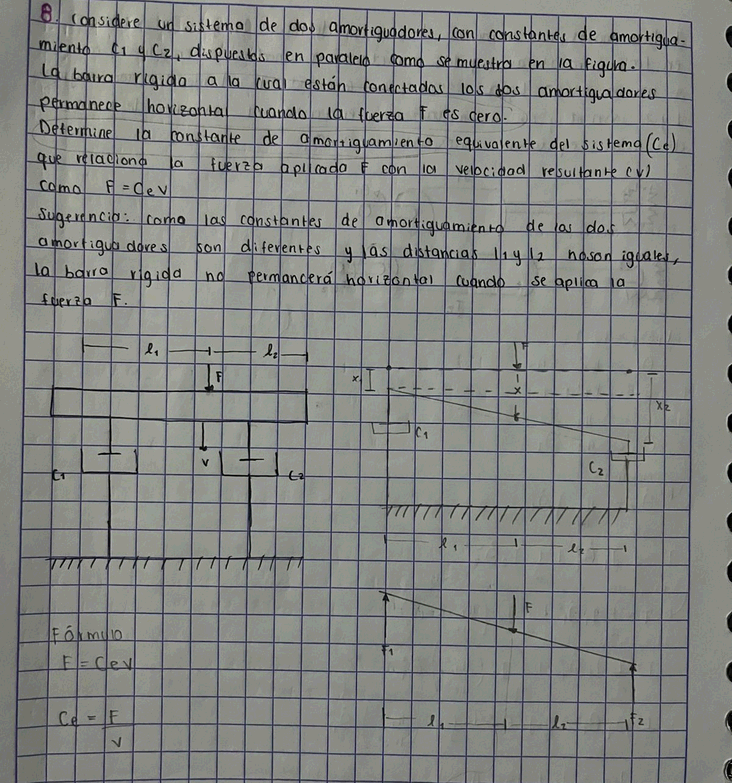 8. Considere un sistema de dos amortiguadores, con constantes de amortigua-
miento C1 y C2, dispuestos en paralelo como se muestra en la figura.
La barra rígida a la cual están conectadas los dos amortiguadores
permanece horizontal cuando la fuerza F es cero.
Determine la constante de amortiguamiento equivalente del sistema (Ce)
que relaciona la fuerza aplicada F con la velocidad resultante (v)
como F = Cev
Sugerencia: como las constantes de amortiguamiento de las dos
amortiguadores son diferentes y las distancias l1 y l2 no son iguales,
la barra rígida no permancerá horizontal cuando se aplica la
fuerza F.
l1 l2
F
v
C1 C2
F
x1 x x2
C1
C2
l1 l2
F
F1
F2
l1 l2
Fórmulo
F = Cev
Ce = F
v